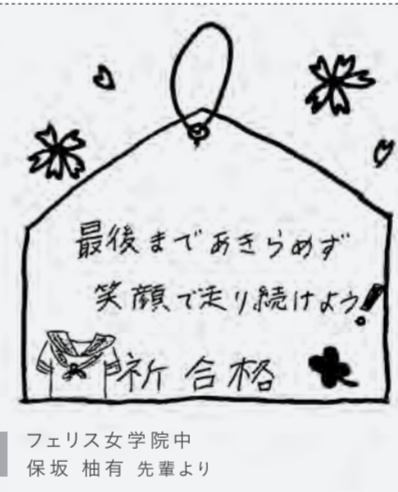 最後まであきらめず
笑顔で走り続けよう!
祈合格
フェリス女学院中
保坂 柚有 先輩より